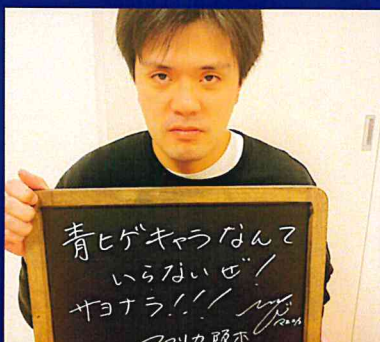 青ヒゲキャラなんて
いらないぜ!
サヨナラ!!!